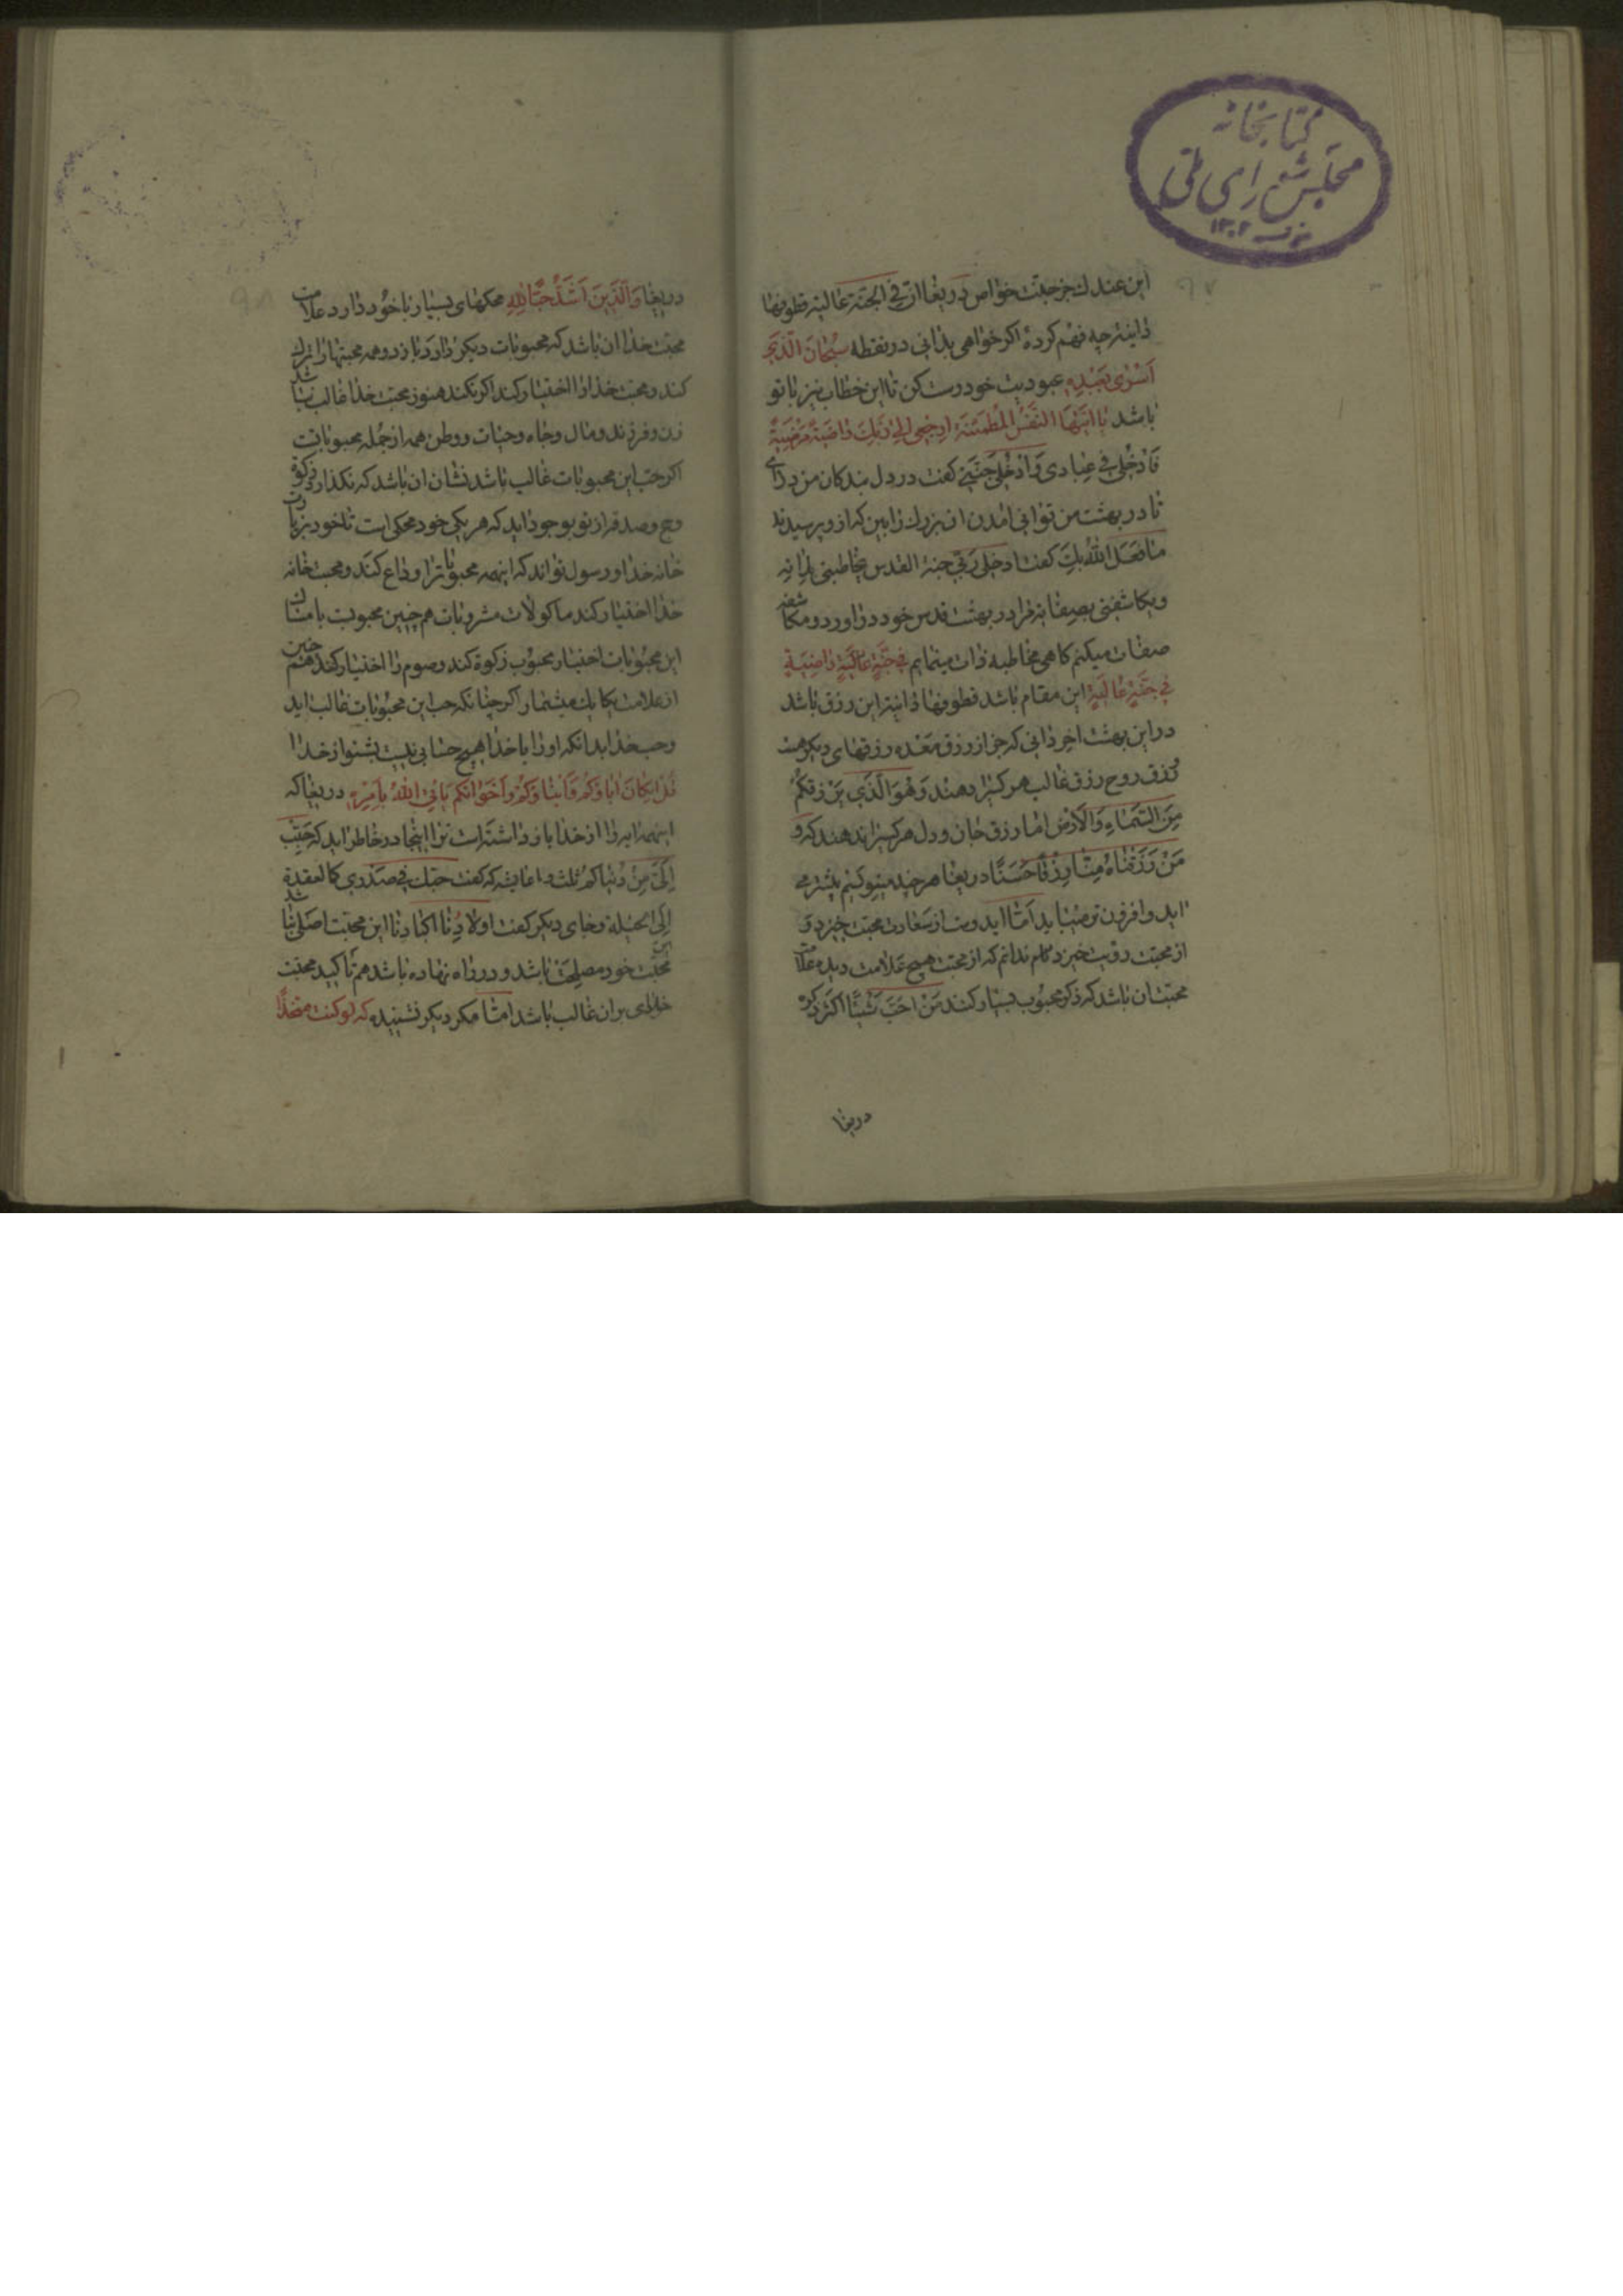 کتابخانه
مجلس شورای ملی
۱۳۰۲
۹۷
ابن عندك جز جنت خواص دریغا ان فی الجنة عالیة قطوفها
دانیة چه فهم کردهٔ اکر خواهی بدانی در نقطه سُبحان الَّذی
اَسْرٰی بِعَبْدِهِ عبودیت خود درست کن تا این خطاب نیز با تو
باشد یا ایَّتُهَا النَّفسُ المُطمَئنَّة ارجِعی الی رَبِّكِ راضیَةً مَرضیَّةً
فَادخُلی فی عِبادی وَادْخُلی جَنَّتی کفت در دل بندکان من درای
تا در بهشت من توانی امدن ان بزرك را بین که از و پرسیدند
ما فَعَلَ اللهُ بِكَ کفت ادخلنی ربی جنة القدس یخاطبنی بذاته
ویکاشفنی بصفاته مرا در بهشت قدس خود دراورد و مکاشفه
صفات میکنم کاهی مخاطبه ذات مینمایم فی جَنَّةٍ عالیَةٍ راضِیَةٍ
فی جَنَّةٍ عالیَةٍ این مقام باشد قطوفها دانیة این رزق باشد
در این بهشت اخر دانی که جز از رزق معده رزقهای دیکر هست
رزق روح رزق غالب هر کس را دهند وَهُوَ الَّذی یَرْزُقکُم
مِنَ السَّماءِ وَالاَرْضِ اما رزق جان و دل هر کس را ندهند که و
مَنْ رَزَقْناهُ مِنّا رِزْقاً حَسَناً دریغا هر چند مینویسم بیشتر می
اید و افزون تر میاید امّا اید وست از سعادت محبت خیزد و
از محبت رؤیت خیزد کام ندانم که از محبت هیچ علامت دیدهٔ علامت
محبت ان باشد که ذکر محبوب بسیار کنند مَنْ اَحَبَّ شَیْئاً اکثَرَ ذِکرَه
دریغا
۹۸
دریغا وَالَّذینَ اَشَدُّ حُبّاً لِلّهِ محکهای بسیار با خود دارد علامت
محبت خدا ان باشد که محبوبات دیکر دارد و باز د و همه محبتها را ترك
کند و محبت خدا را اختیار کند اکر نکند هنوز محبت خدا غالب نباشد
زن و فرزند و مال و جاه و حیات و وطن همه از جُمله محبوباتست
اکر حب این محبوبات غالب باشد نشان ان باشد که نکذارد زکوة
و حج و صدقه از تو بوجود اید که هر یکی خود محکی است تا خود بزیارت
خانه خدا و رسول تواند که اینهمه محبوبات را وداع کند و محبت خانه
خدا اختیار کند ماکولات مشروبات هم چنین محبوبست با امساك
این محبُوبات اختیار محبُوب زکوة کند و صوم را اختیار کند هم چنین
از علامت یکایك میشمار اکر چنانکه حب این محبُوبات غالب اید
و حب خدا بدانکه او را با خدا هیچ حسابی نیست بشنو از خدا
قُلْ اِنکانَ اباؤکُم وَاَبْناؤکُم وَاَخَوانکُم یَاتی اللهُ بِاَمْرِهِ دریغا که
اینهمه او را از خدا باز داشته است ترا اینجا در خاطر اید که حُبِّبَ
اِلَیَّ مِنْ دُنیاکُم ثلث و با عایشه که کفت حبّك فی صَدری کالعقدة
فی الحبل و جای دیکر کفت اولادُنا اکبادنا این محبّت اصلی نباشد
این محبّت خود مصلحت باشد و در راه نهاده باشد هم تاکید محبّت
خدای بران غالب باشد امّا مکر دیکر نشنیدهٔ که لَو کنت متّخذاً